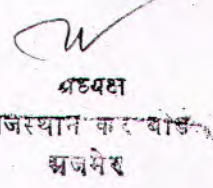 अध्यक्ष
जस्थान कर बोर्ड
अजमेर